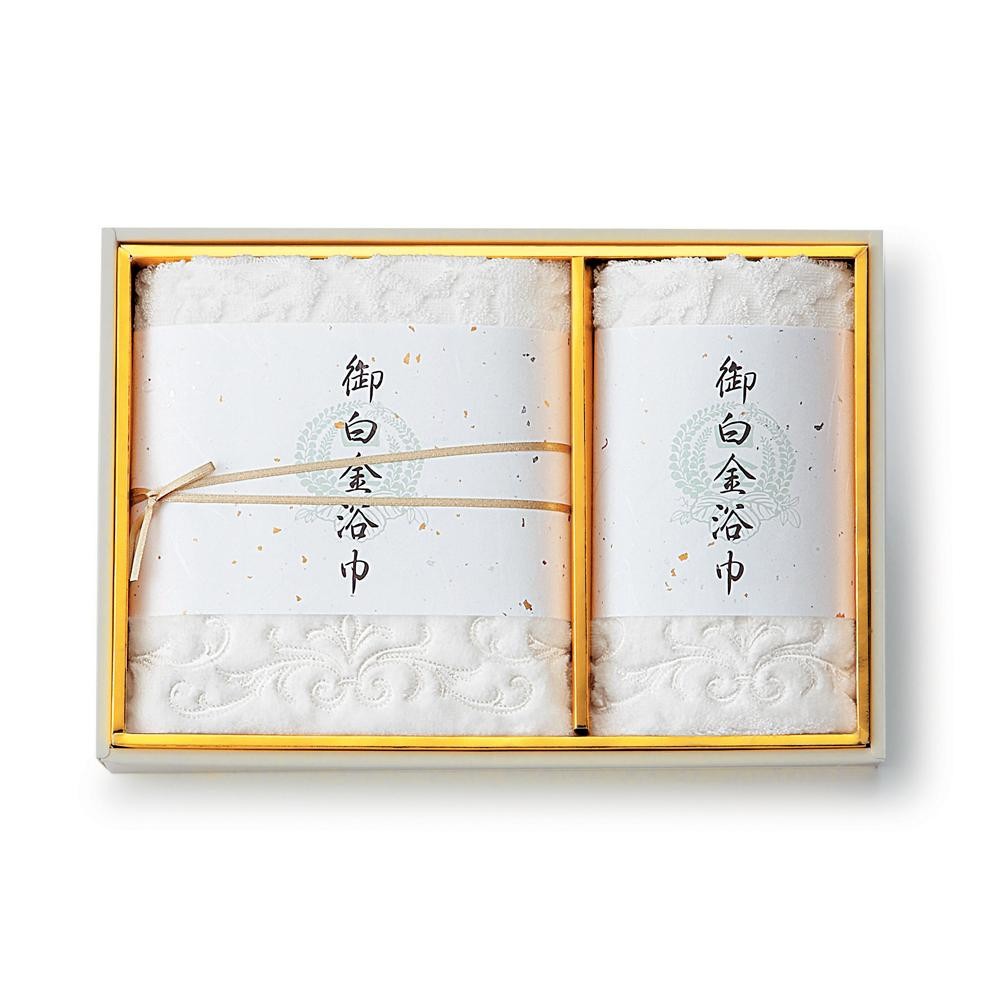 御白金浴巾
御白金浴巾